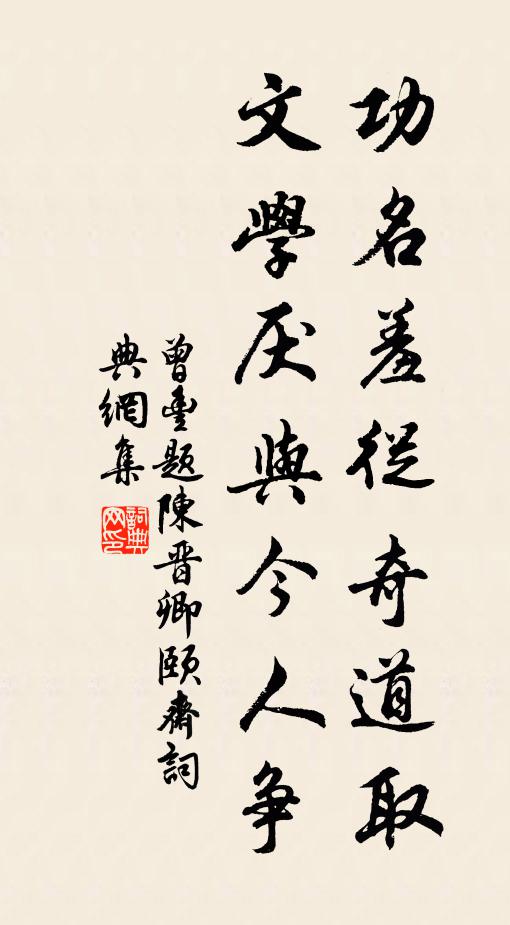 功名羞從奇道取
文學厌與今人争
曾豊題陳晋卿頤齋詞
典網集
詞典網印